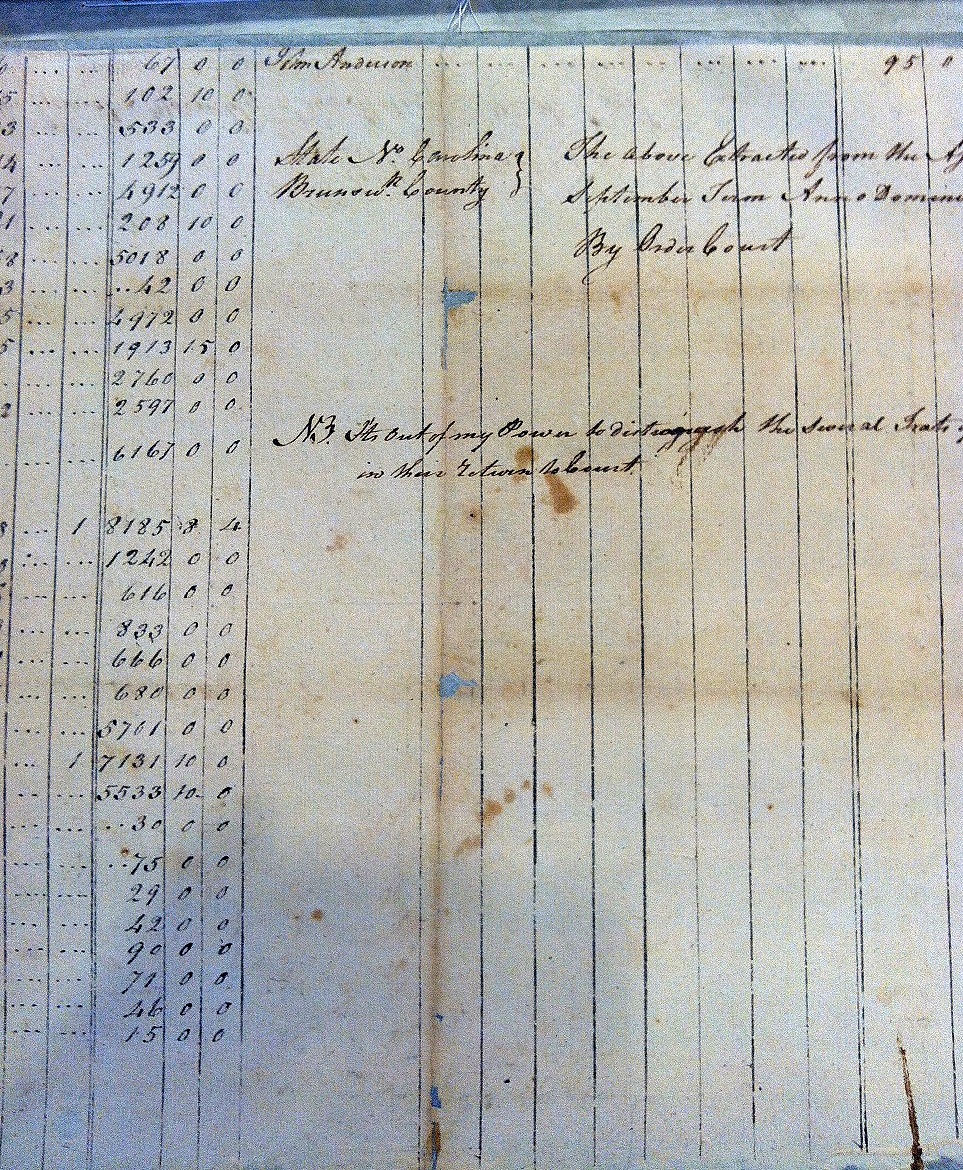 67 0 0 John Anderson ... ... ... ... ... ... ... ... 95 0
5 ... ... 102 10 0
3 ... ... 533 0 0
4 ... ... 1259 0 0 State No. Carolina } The above Extracted from the
7 ... ... 4912 0 0 Brunswk. County } September Term Anno Domini
1 ... ... 208 10 0
By Order Court
8 ... ... 5018 0 0
3 ... ... ..42 0 0
5 ... ... 4972 0 0
5 ... ... 1913 15 0
... ... 2760 0 0
2 ... ... 2597 0 0
NB. Its out of my Power to distinguish the several Trats
... ... 6167 0 0
in their return to Court
8 ... 1 8185 8 4
... ... 1242 0 0
... ... 616 0 0
... ... 833 0 0
... ... 666 0 0
... ... 680 0 0
... ... 5701 0 0
... 1 7131 10 0
... ... 5533 10 0
... ... ..30 0 0
... ... ..75 0 0
... ... 29 0 0
... ... 42 0 0
... ... 90 0 0
... ... 71 0 0
... ... 46 0 0
... ... 15 0 0